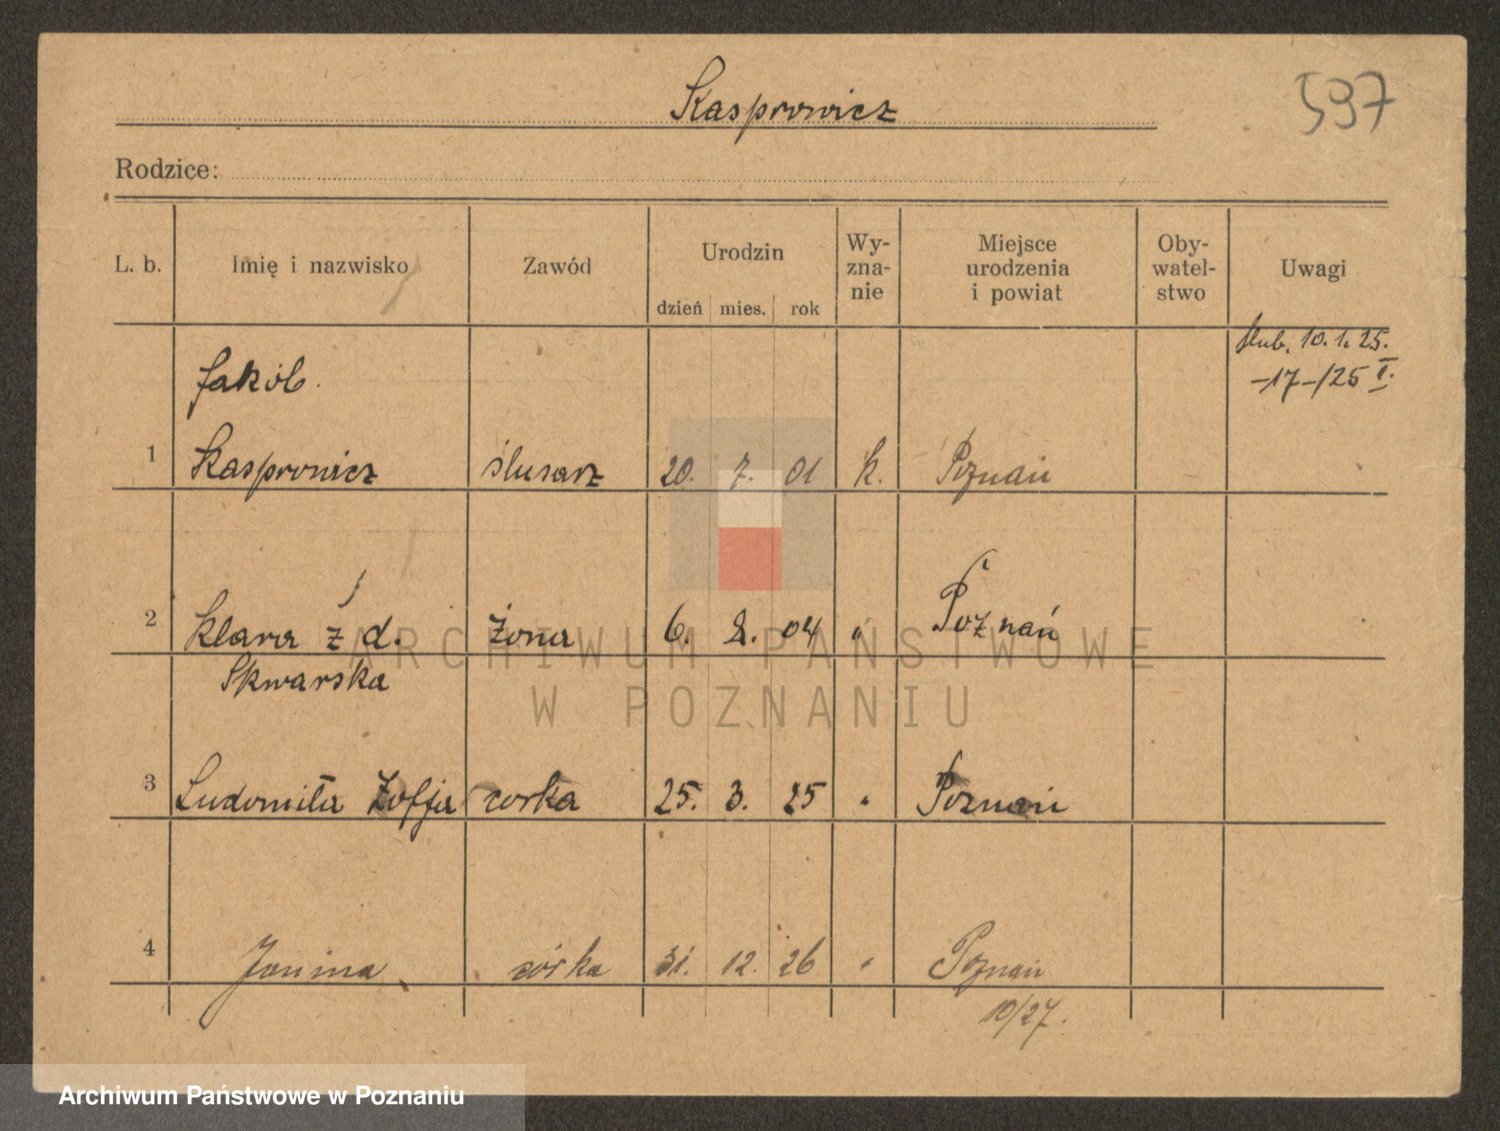 Kasprowicz
597
Rodzice:
L. b. Imię i nazwisko Zawód Urodzin dzień mies. rok Wy-zna-nie Miejsce urodzenia i powiat Oby-watel-stwo Uwagi
ślub. 10. 1. 25.
-17-/25 I.
Jakób.
1 Kasprowicz ślusarz 20. 7. 01 k. Poznań
2 Klara z d. żona 6. 8. 04 " Poznań
Skwarska
3 Ludomiła Zofja corka 25. 3. 25 " Poznań
4 Janina córka 31. 12. 26 " Poznań
10/27.
ARCHIWUM PAŃSTWOWE
W POZNANIU
Archiwum Państwowe w Poznaniu